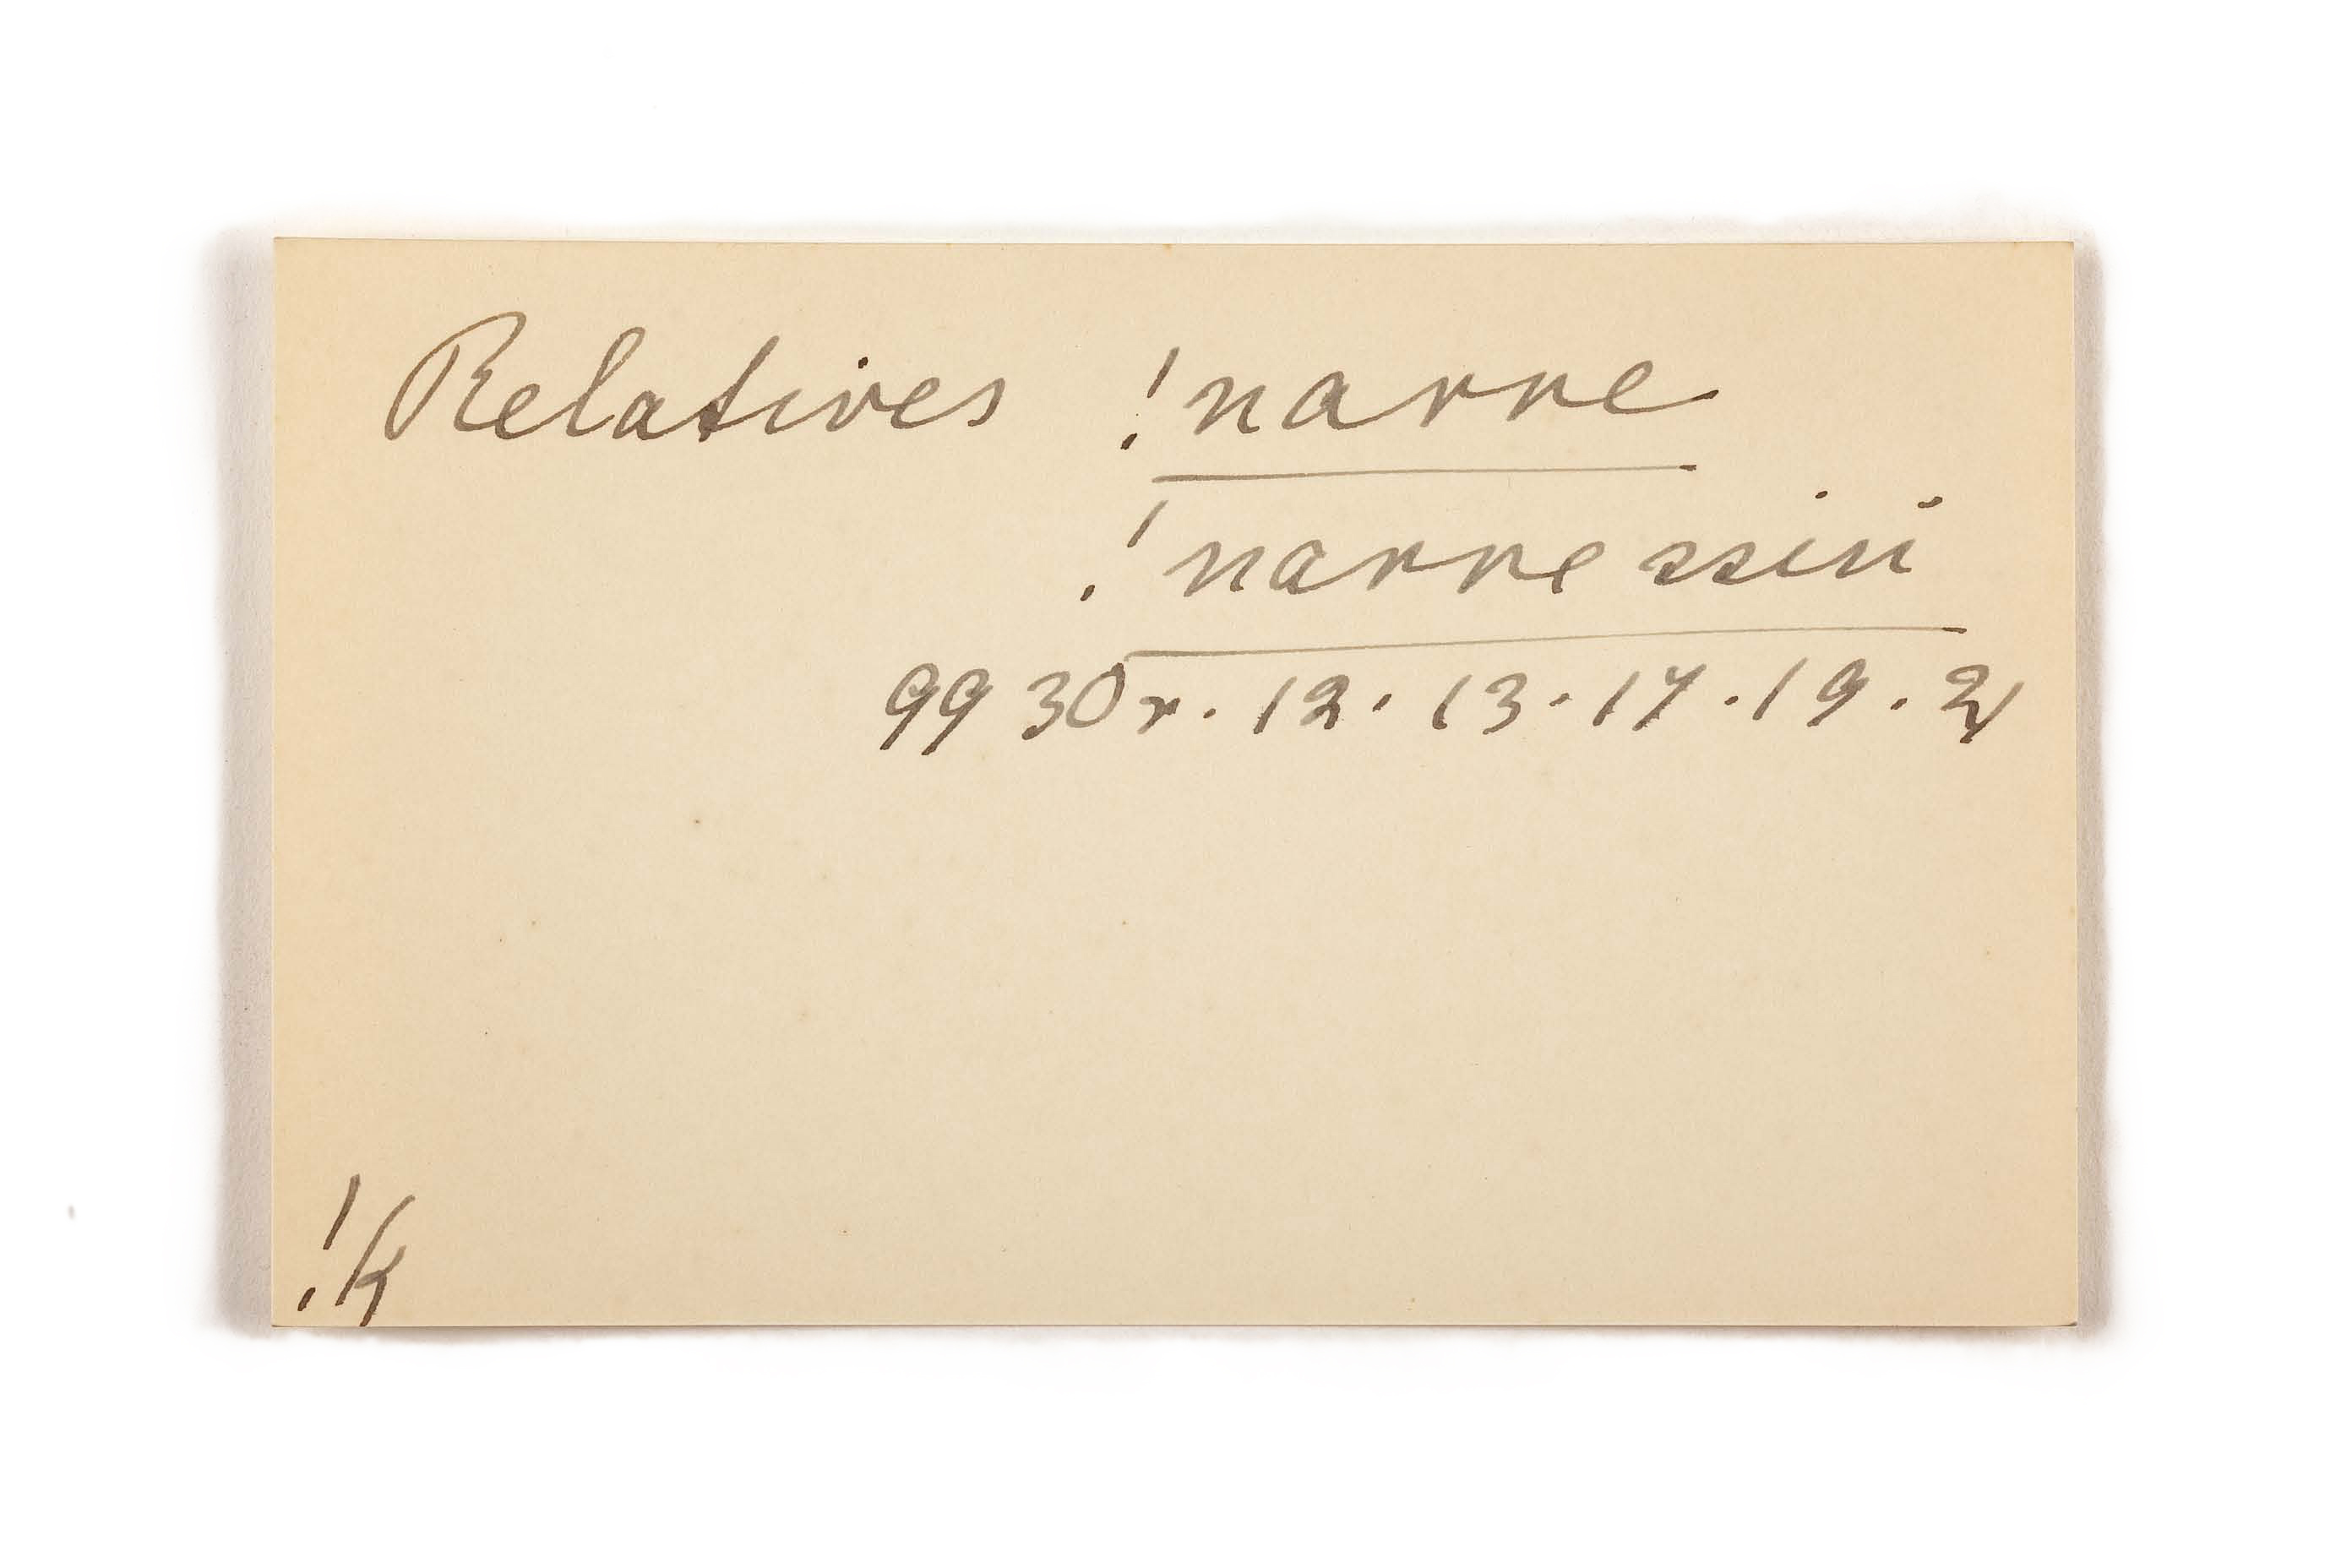 Relatives !narre
!narressin
9930r. 12. 13. 17. 19. 21
!k